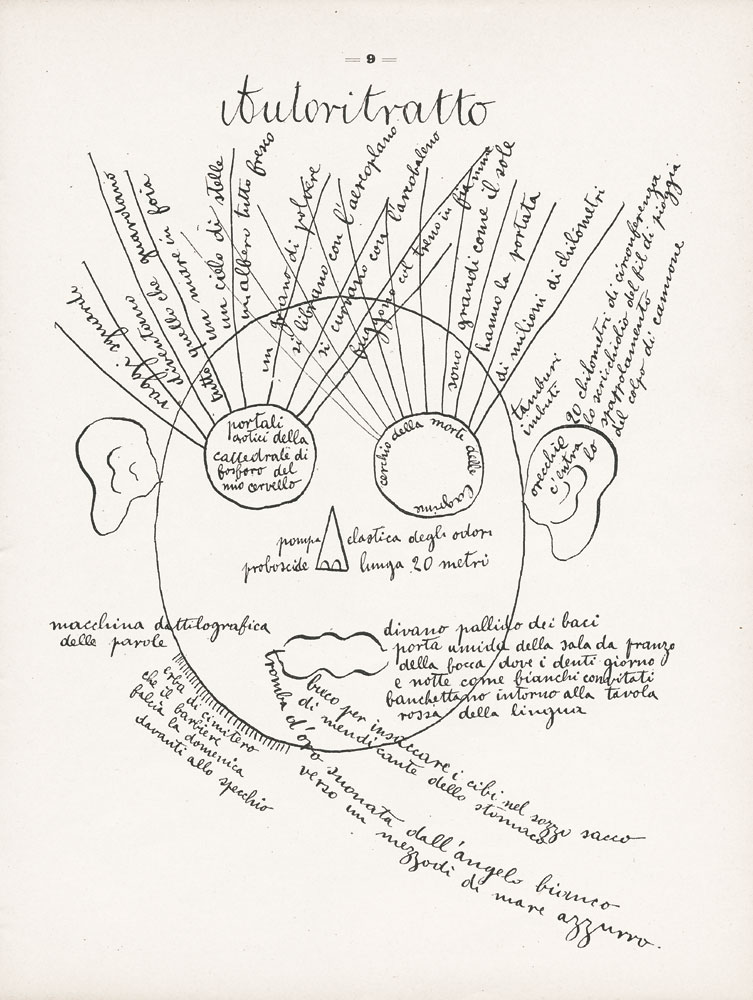 9
Autoritratto
raggi sguardi
diventano
tutto quello che guardano
un cuore in foia
un cielo di stelle
un albero tutto fresco
un grano di polvere
si librano con l'aeroplano
si curvano con l'arcobaleno
fuggono col treno in fiamme
sono grandi come il sole
hanno la portata
di milioni di chilometri
tamburi
imbuti
20 chilometri di circonferenza
lo scricchiolio del fil di pioggia
spappolamento
del colpo di cannone
portali
ostici della
cattedrale di
fosforo del
mio cervello
cerchio della morte delle lagrime
orecchie
c'entra
lo
pompa elastica degli odori
proboscide lunga 20 metri
macchina dattilografica
delle parole
divano pallido dei baci
porta umida della sala da pranzo
della bocca dove i denti giorno
e notte come bianchi convitati
banchettano intorno alla tavola
rossa della lingua
erba di cimitero
che il barbiere
falcia la domenica
davanti allo specchio
buco per insaccare i cibi nel sozzo sacco
di mendicante dello stomaco
tromba d'oro suonata dall'angelo bianco
verso un mezzodì di mare azzurro.